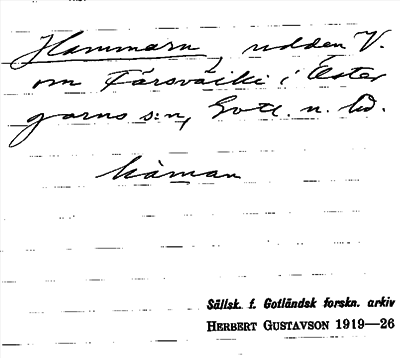 Hammarn, udden V.
om Färsväiki i Öster
garns s:n, Gotl. n. hd.
håman
Sällsk. f. Gotländsk forskn. arkiv
HERBERT GUSTAVSON 1919—26